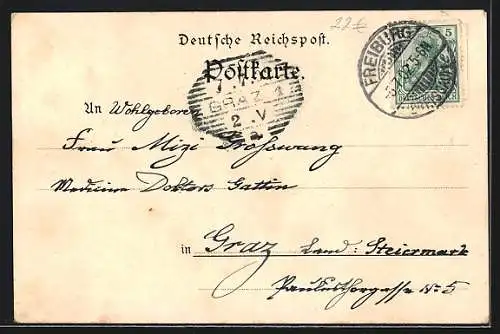 22€
Deutsche Reichspost.
Postkarte.
FREIBURG
5-6N
5
GRAZ 1
2 V
a
An Wohlgeboren
Frau Mizi Prosswang
Medicine Doktors Gattin
in Graz Land: Steiermark
Paulusthorgasse No 5